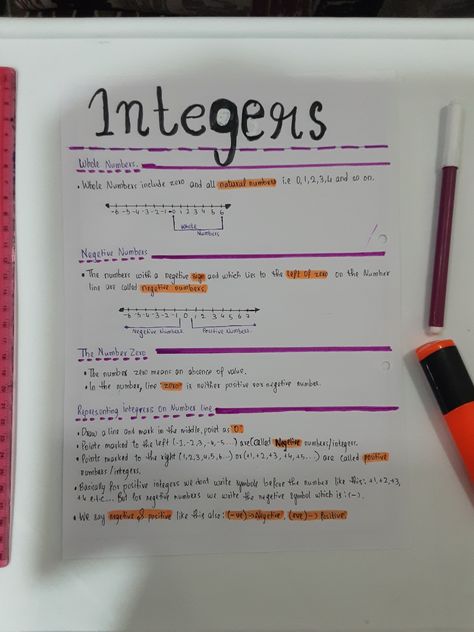 Integers
Whole Numbers.
• Whole Numbers include zero and all natural numbers i.e 0,1,2,3,4 and so on.
-6 -5 -4 -3 -2 -1 0 1 2 3 4 5 6
Whole
Numbers
Negetive Numbers
• The numbers with a negetive sign and which lies to the left of zero on the Number
line are called negetive numbers.
-6 -5 -4 -3 -2 -1 0 1 2 3 4 5 6 7
Negetive Numbers. Positive Numbers.
The Number Zero
• The number zero means an absence of value.
• In the number line "zero" is neither positive nor negetive number.
Representing Integers on Number line.
• Draw a line and mark in the middle, point as '0'.
• Points marked to the left (-1,-2,-3,-4,-5...) are called Negetive numbers/integers.
• Points marked to the right (1,2,3,4,5,6...) or (+1,+2,+3,+4,+5...) are called positive
numbers/integers.
• Basically for positive integers we dont write symbols before the number like this: +1,+2,+3,
+4 e.t.c... But for negetive numbers we write the negetive symbol which is: (-).
• We say negetive & positive like this also: (-ve)→Negetive, (+ve)→Positive.